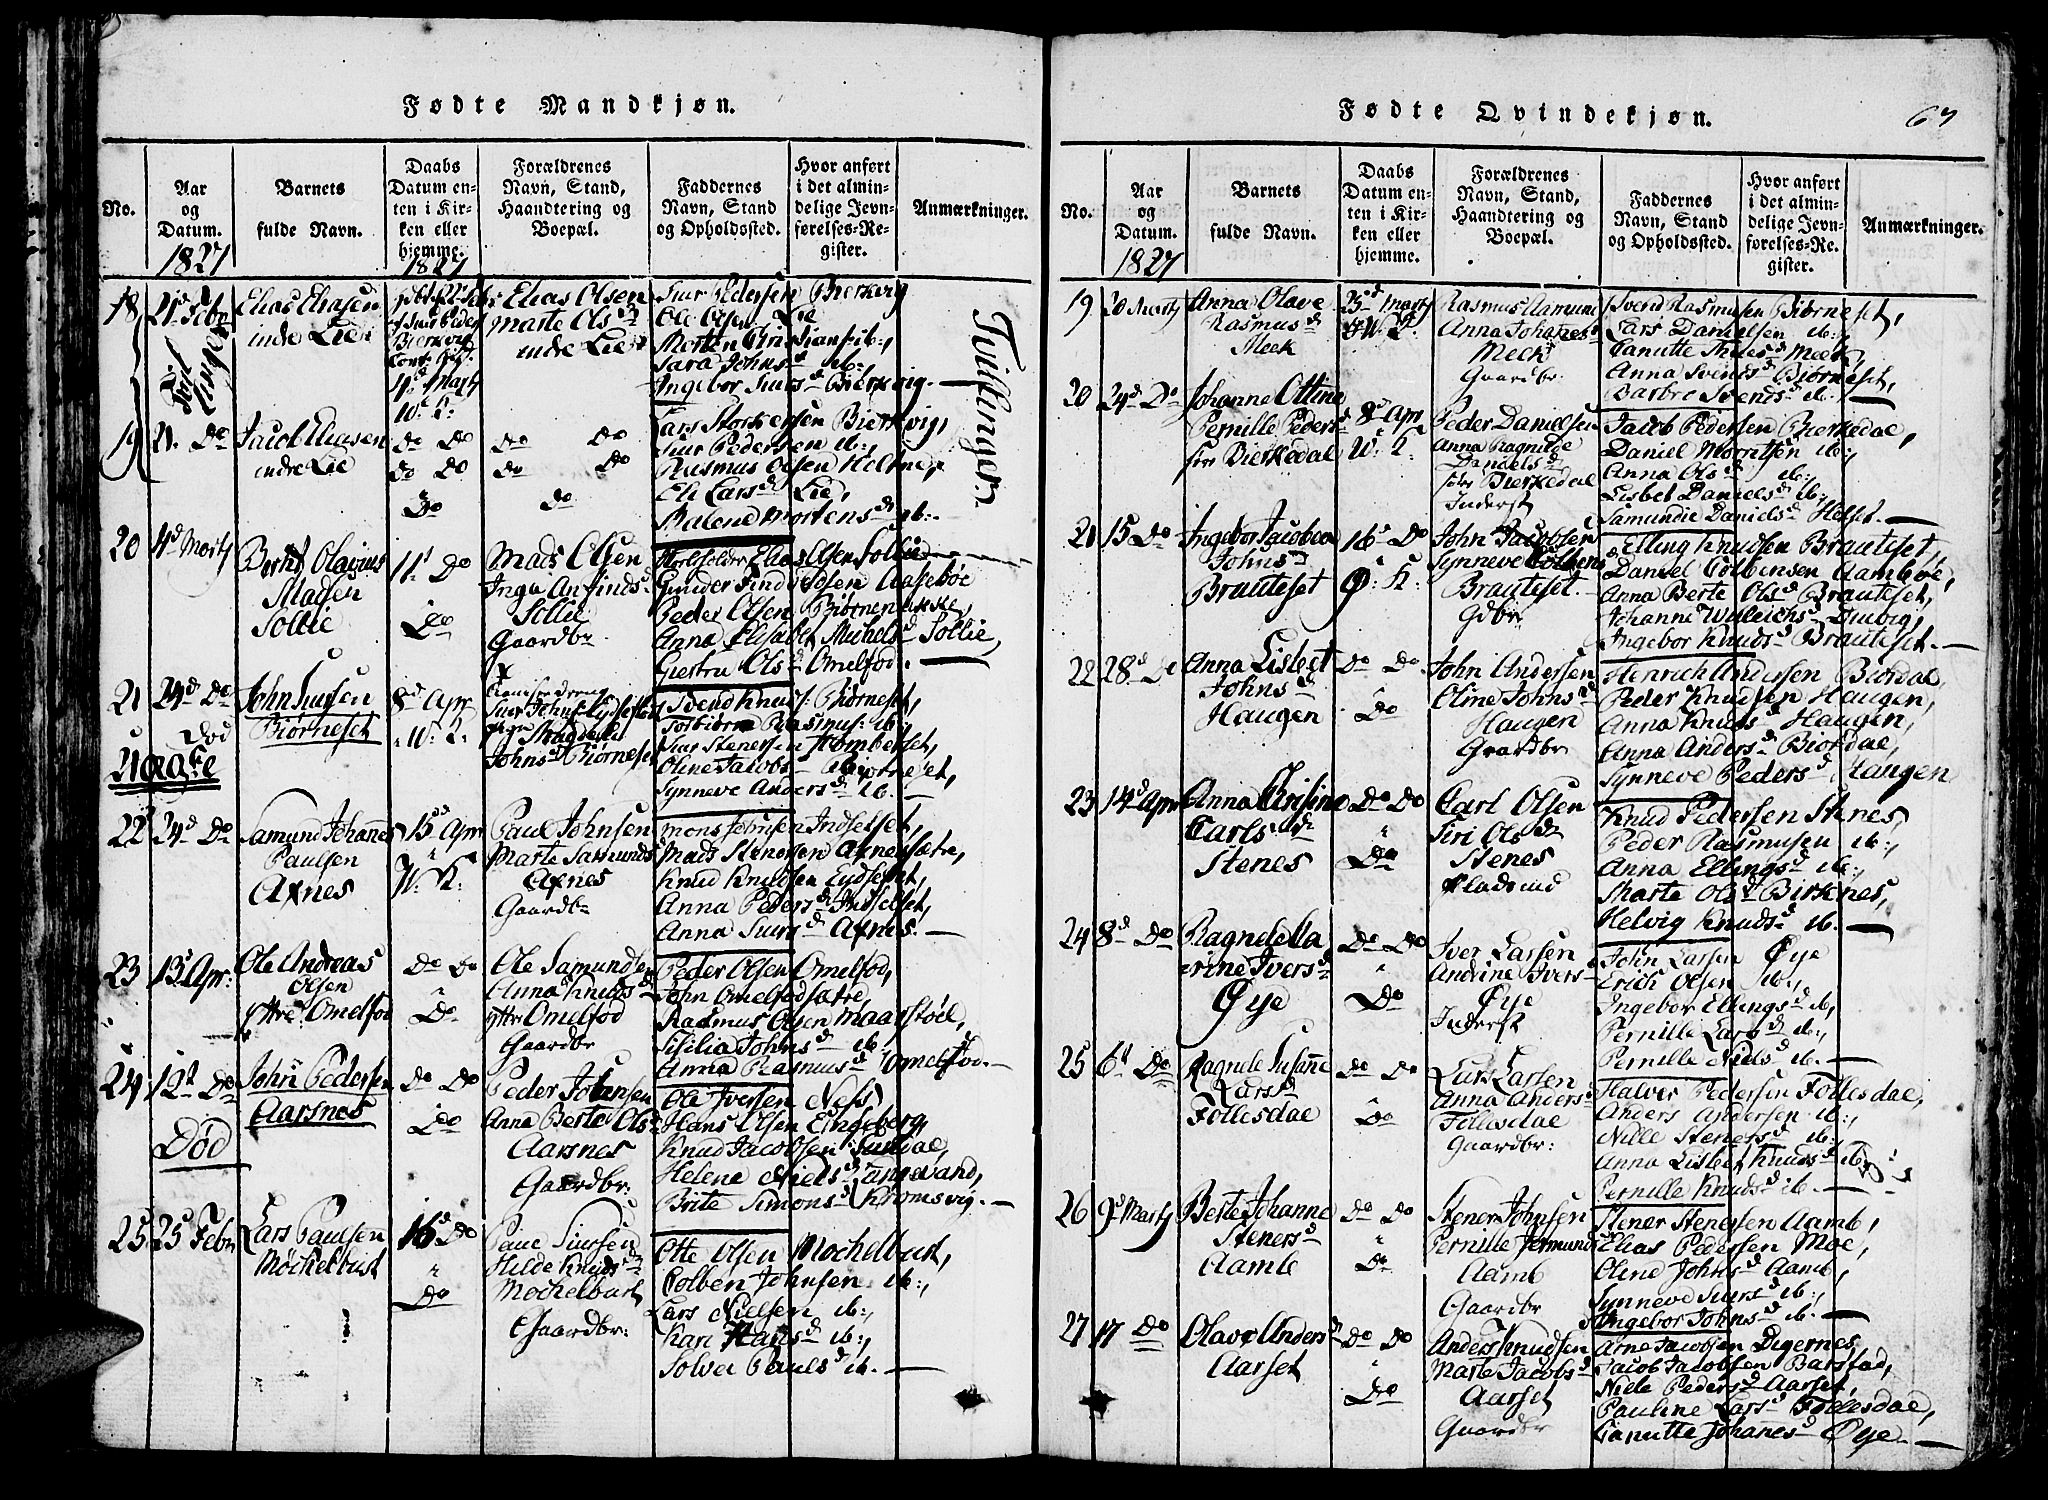 Fødte Mandkjøn.
No.
Aar
og
Datum.
1827
Barnets
fulde Navn.
Daabs
Datum en-
ten i Kir-
ken eller
hjemme.
1827
Forældrenes
Navn, Stand,
Haandtering og
Boepæl.
Faddernes
Navn, Stand
og Opholdssted.
Hvor anført
i det almin-
delige Jevn-
førelses-Re-
gister.
Anmærkninger.
18
21d Febr
Elias Eliasen
indre Lie
4d Marts
W: K:
Elias Olsen
Marte Olsd
indre Lie
Siur Pedersen Bierkvig
Ole Olsen Lie
Morten Christians: ib:,
Sara Johnsd ib:,
Ingebor Siursd Bierkvig.
Tvillinger.
19
21. Do
Jacob Eliasen
indre Lie
Do Do
Do Do
Do
Do Do
Do Do
Do
Lars Storkersen Bierkvig,
Siur Pedersen ib:,
Rasmus Olsen
Eli Larsd Lie,
Malene Mortensd ib:
20
4d Marts
Bernt Olavus
Madsen
Sollie
11d Do
Do
Mads Olsen
Inga Anfindsd
Sollie
Gaardbr
Elias Olsen Sollie
Gunder Findsen Aasebøe
Peder Olsen Biørnenakke,
Anna Elisabet Michelsd Sollie,
Giertru Olsd Omelfod.
21
24d Do
Død
Uægte
John Siursen
Biørneset
8d Apr
W: K:
Magdele
Johnsd Biørneset
Svend Knuds: Biørneset,
Torbiørn Rasmus: ib:
Siur Stenersen
Oline Jacobsd Biørneset,
Synneve Andersd ib.
22
24d Do
Samund Johannes
Paulsen
Axnes
15d Apr
W: K:
Paul Johnsen
Marte Samundsd
Axnes
Gaardbr
Mons Johnsen Indselset,
Mads Stenersen Axnessætre,
Knud Knudsen Eydsemt,
Anna Pedersd Indselset,
Anna Siursd Axnes.
23
13d Apr:
Ole Andreas
Olsen
yttre Omelfod
Do Do
Do
Ole Samundsen
Anna Knudsd
yttre Omelfod
Gaardbr
Peder Olsen Omelfod,
John Omelfodsætre,
Rasmus Olsen Maarstøde,
Sisilia Johnsd ib,
Anna Rasmusd Omelfod.
24
12d Do
Død
John Pedersen
Aarsnes
Do Do
Do
Peder Johansen
Anna Berte Olsd
Aarsnes
Gaardbr:
Ole Iversen Nes,
Hans Olsen Engeberg,
Knud Jacobsen Sundae,
Helene Nielsd Tangevand,
Brite Simonsd Kromsvig.
25
25d Febr
Lars Paulsen
Møckelbust
16d Do
Do
Paul Siursen
Hilde Knudsd
Møckelbust
Gaardbr:
Otte Olsen Mochelbust,
Colben Johnsen ib:,
Lars Nielsen ib:,
Kari Matsd ib:,
Solvei Paulsd ib.
Fødte Qvindekjøn.
67
No.
Aar
og
Datum.
1827
Barnets
fulde Navn.
Daabs
Datum en-
ten i Kir-
ken eller
hjemme.
Forældrenes
Navn, Stand,
Haandtering og
Boepæl.
Faddernes
Navn, Stand
og Opholdssted.
Hvor anført
i det almin-
delige Jevn-
førelses-Re-
gister.
Anmærkninger.
19
20 Marts
Anna Olave
Rasmusd
Meek
25d Marts
W. K.
Rasmus Aamund
Anna Johanesd
Meek
Gaardbr.
Svend Rasmusen Biørneset,
Lars Danielsen ib:,
Canutte Thiesd Meek,
Anna Svendsd Biørneset,
Barbro Svendsd ib.
20
24d Do
Johanne Ottine
Pernille Pedersd
Bierkedal
8d Apr
W. K:
Peder Danielsen
Anna Ragnilde
Danielsd
Bierkedal
Inderst
Jacob Pedersen Bierkedal,
Daniel Morritsen ib:,
Anna Olsd ib:,
Lisbet Danielsd ib:,
Samundie Danielsd Helset.
21
15 Do
Ingebor Jacobea
Johnsd
Brauteset
16d Do
Ø: K:
John Jacobsen
Synneve Colbensd
Brauteset
Gdbr
Elling Knudsen Brauteset,
Daniel Colbensen Aambøe,
Anna Berte Olsd Brauteset,
Johanne Willeichsd Dravig,
Ingebor Knudsd Brauteset.
22
28d Do
Anna Lisbet
Johnsd
Haugen
Do Do
Do
John Andersen
Oline Johnsd
Haugen
Gaardbr
Henrich Andersen Biordal,
Peder Knudsen Haugen,
Anna Knudsd Haugen,
Anna Andersd Biordal,
Synneve Pedersd Haugen
23
14d Apr
Anna Krisine
Carlsd
Stenes
Do Do
Do
Carl Olsen
Siri Olsd
Stenes
Pladsmd
Knud Pedersen Stenes,
Peder Rasmusen ib:,
Anna Ellingsd ib:,
Marte Olsd Birknes,
Helvig Knudsd ib.
24
8d Do
Ragnele La
Iversd
Øye
Do Do
Do
Iver Larsen
Andrine Iversd
Øye
Inderst
John Larsen Øye
Erich Olsen ib.,
Ingebor Ellingsd ib,
Pernille Larsd ib:,
Pernille Nielsd ib.
25
6d Do
Ragnele Susanne
Larsd
Follesdal
Do Do
Do
Lars Larsen
Anna Andersd
Follesdal
Gaardbr:
Halver Pedersen Follesdal,
Anders Andersen ib:,
Nille Stenersd ib:,
Anna Lisbet Knudsd ib:
Pernille Knudsd ib.
26
9d Marts
Berte Johanne
Stenersd
Aamb
Do Do
Do
Stener Johnsen
Pernille Jermunds
Aamb
Gaardbr
Stener Stenersen Aamb,
Elias Pedersen Moe,
Oline Johnsd Aamb,
Synneve Siursd ib:,
Ingebor Johnsd ib.
27
17 Do
Olave Andersd
Aarset
Do Do
Do
Anders Knudsen
Marte Jacobsd
Aarset
Gaardbr
Arne Jacobsen Digernes,
Jacob Jacobsen Barstad,
Niele Pedersd Aarset,
Pauline Larsd Follesdal,
Canutte Johanesd Øye.